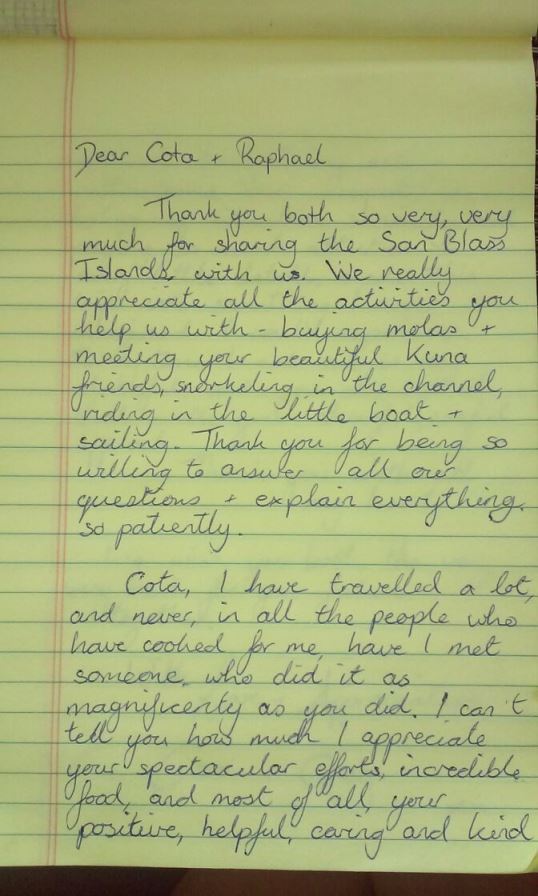 Dear Cota + Raphael
Thank you both so very, very
much for sharing the San Blass
Islands with us. We really
appreciate all the activities you
help us with - buying molas +
meeting your beautiful Kuna
friends, snorkeling in the channel,
riding in the little boat +
sailing. Thank you for being so
willing to answer all our
questions + explain everything
so patiently.
Cota, I have travelled a lot,
and never, in all the people who
have cooked for me, have I met
someone who did it as
magnificently as you did. I can't
tell you how much I appreciate
your spectacular efforts, incredible
food, and most of all, your
positive, helpful, caring and kind